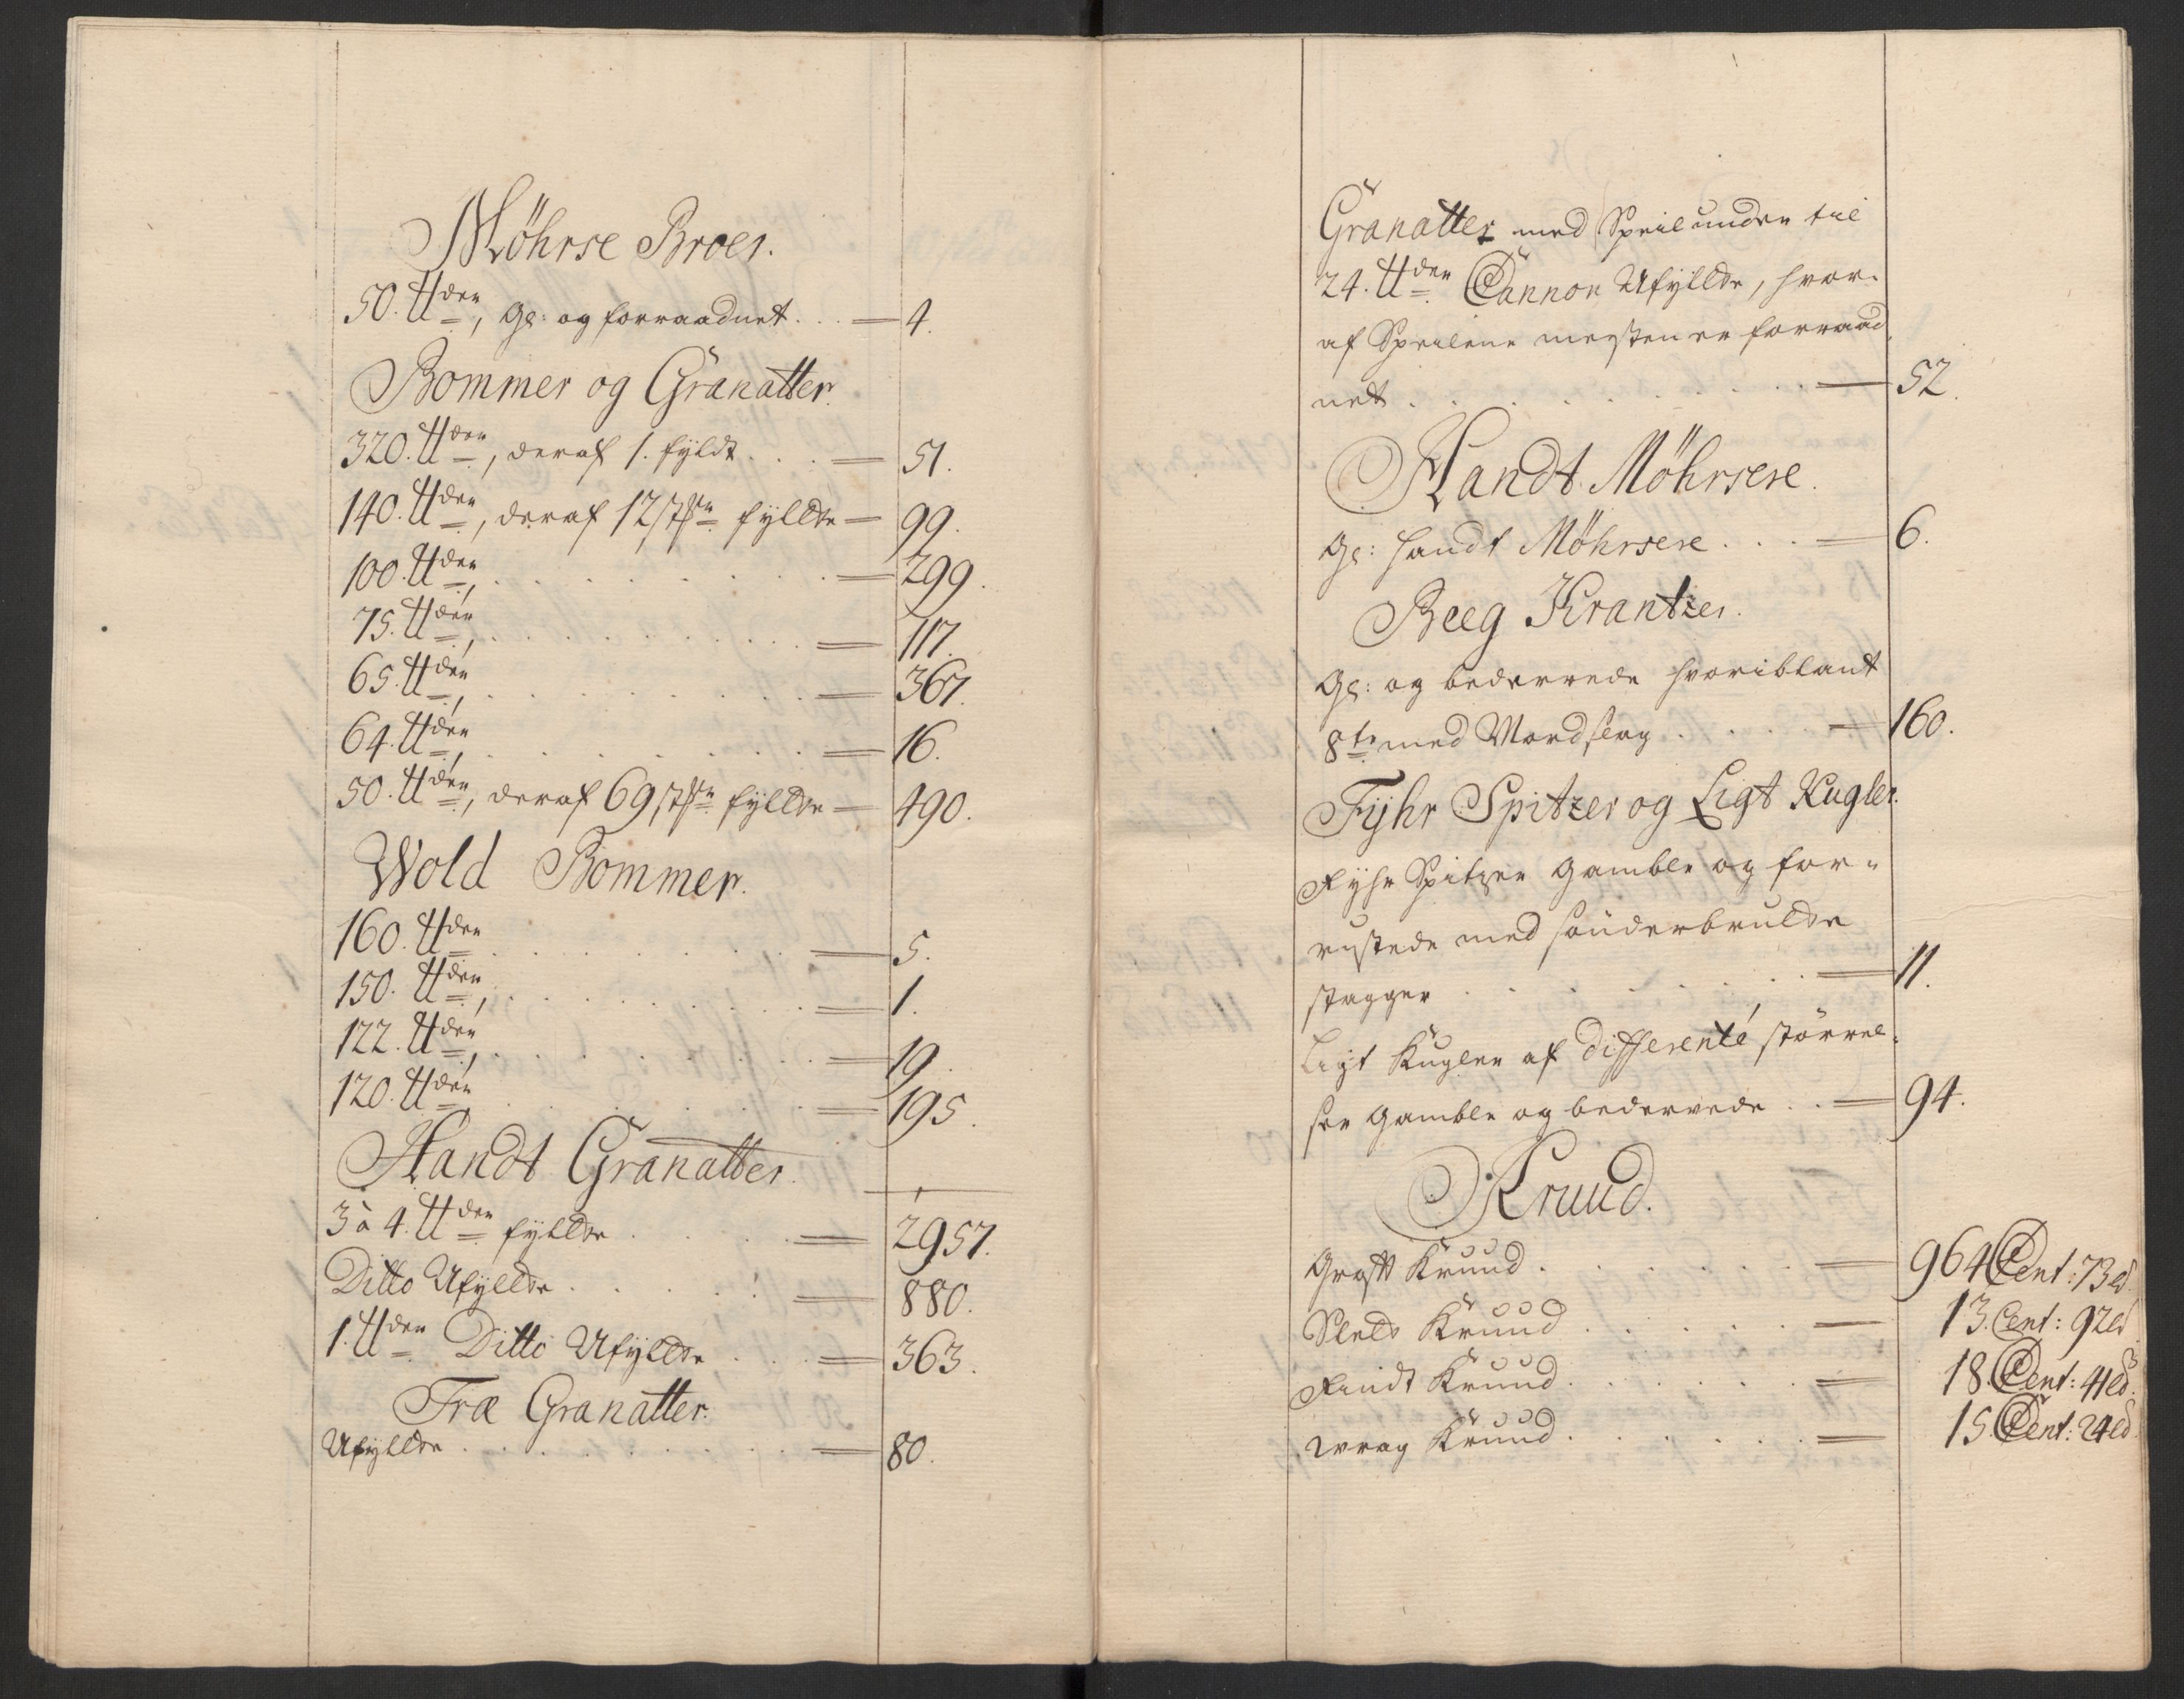 Möhrse Broer.
50. ℔den, Gl: og forraadnet. . . — 4.
Bommer og Granatter.
320. ℔den, deraf 1. fyldt . . . — 51.
140. ℔den, deraf 12 st:en fyldte — 99.
100. ℔den, . . . . . . . — 299.
75. ℔den, . . . . . . . — 117.
65. ℔den, . . . . . . . — 367.
64. ℔den, . . . . . . . — 16.
50. ℔den, deraf 69 st:en fyldte — 490.
Wold Bommer.
160. ℔den . . . . . . . — 5.
150. ℔den, . . . . . . . — 1.
122. ℔den, . . . . . . . — 19.
120. ℔den . . . . . . . — 195.
Handt Granatter.
3 à 4. ℔den fyldte . . . . — 2957.
Ditto Ufyldte . . . . . — 880.
1. ℔den Ditto Ufyldte . . . — 363.
Træ Granatter.
Ufyldte . . . . . . . — 80.
Granatter med Speil under til
24. ℔den Cannon Ufyldte, hvor-
af Speilene mesten er forraad
net . . . . . . . — 52.
Handt Möhrsere.
Gl: Handt Möhrsere . . . — 6.
Beeg Krantzer.
Gl: og bedervede hvoriblant
8te med Mordslag . . . . — 160.
Fyhr Spitzer og Ligt Kugler.
Fyhr Spitzer gamble og for-
rustede med sönderbrulte
stagger . . . . . . . — 11.
Ligt Kugler af differente störrel-
ser gamble og bedervede . . — 94.
Kruud.
Groft Kruud . . . . . . — 964 Cent: 73 ℔.
Slet Kruud . . . . . . — 13. Cent: 92 ℔
Findt Kruud . . . . . . — 18. Cent: 41 ℔.
Wrag Kruud . . . . . . — 15. Cent: 24 ℔